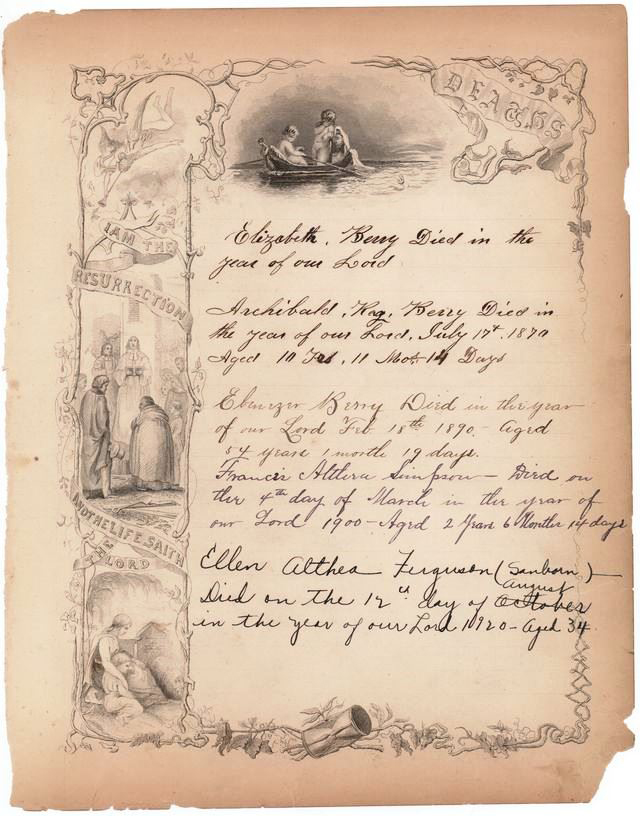 DEATHS
I AM THE
RESURRECTION
AND THE LIFE, SAITH
THE LORD
Elizabeth, Berry Died in the
year of our Lord
Archibald, Berry Died in
the year of our Lord, July 17t, 1870
Aged 10 11 Mos 14 Days
Ebenezer Berry Died in the year
of our Lord Feb 18th 1890 - Aged
54 years 1 month 19 days.
Francis Althera Simpson - Died on
the 4th day of March in the year of
our Lord 1900 - Aged 2 Years 6 Months 14 days
Ellen Althea Ferguson (Sanborn) -
August
Died on the 12th day of October
in the year of our Lord 1920 - Aged 34.